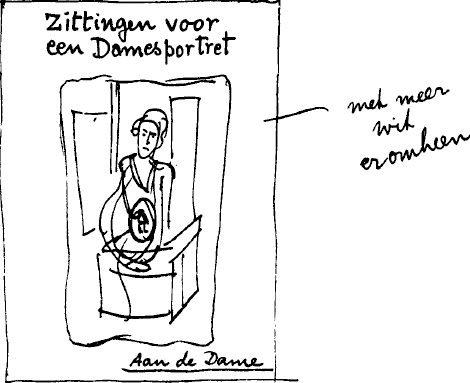 Zittingen voor
een Damesportret
met meer
wit
eromheen
Aan de Dame